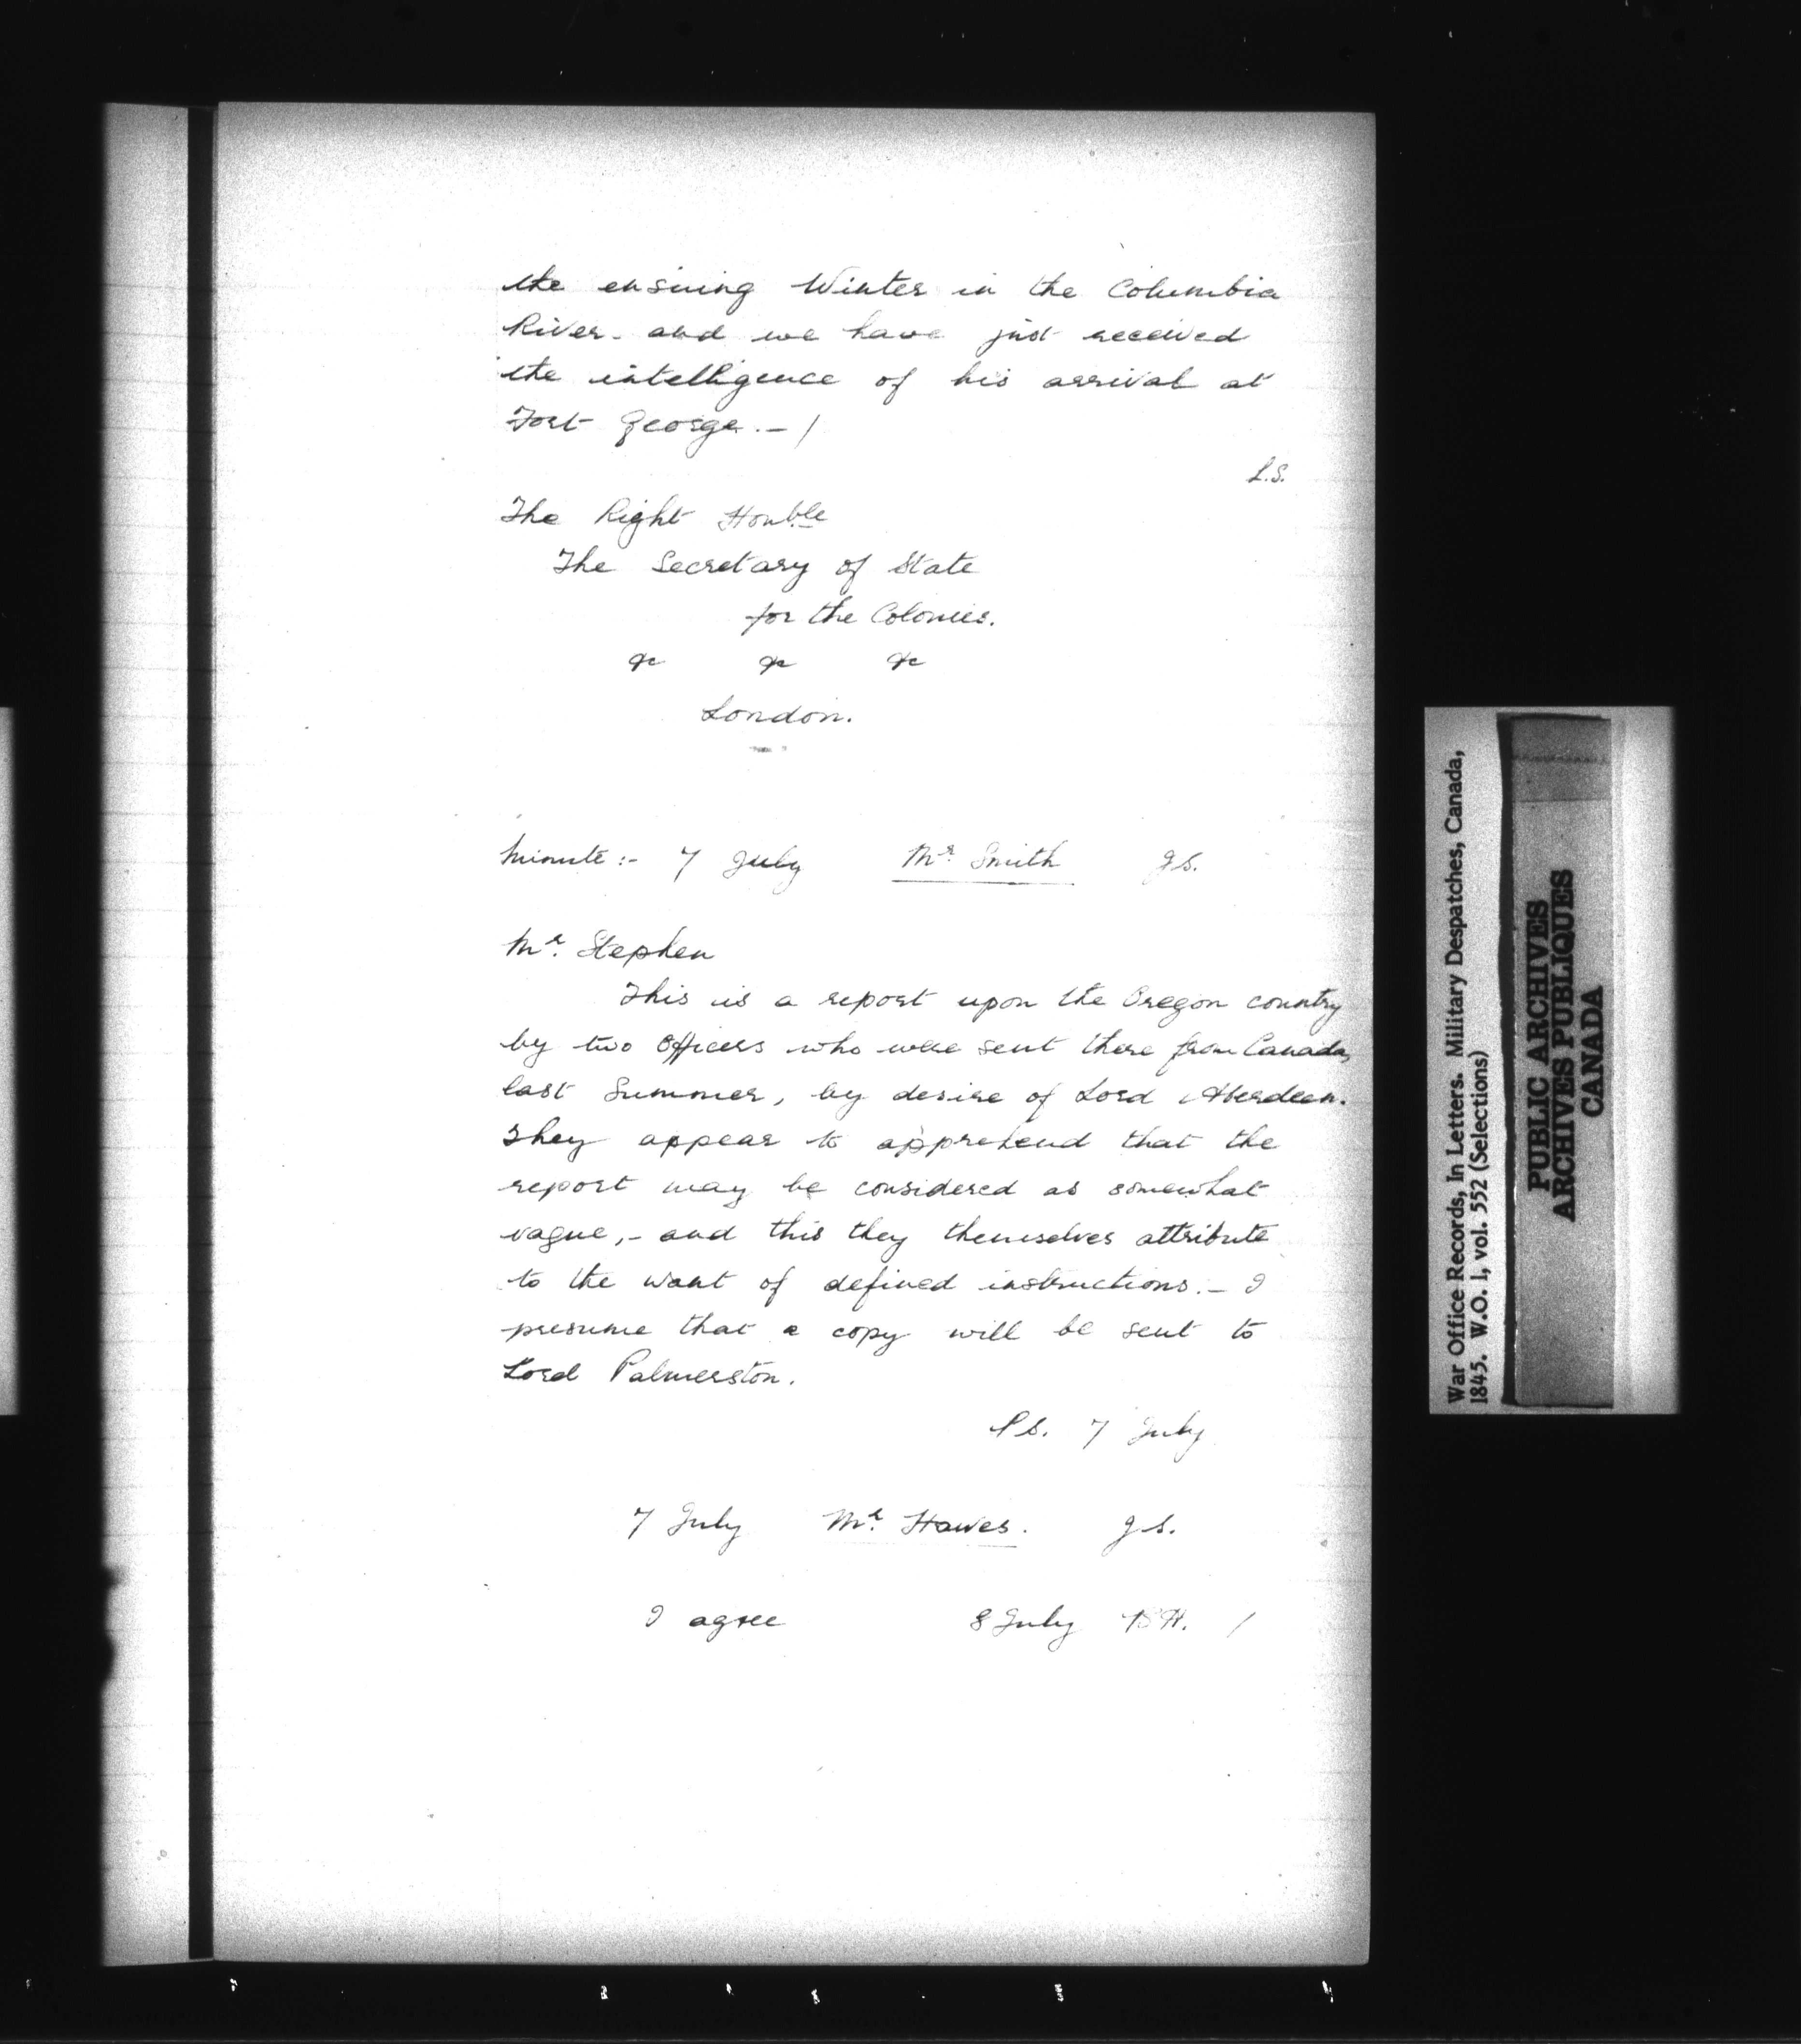 the ensuing Winter in the Columbia
River. and we have just received
the intelligence of his arrival at
Fort George. - /
L.S.
The Right Honble
The Secretary of State
for the Colonies.
&c &c &c
London.
Minute :- 7 July Mr. Smith J.S.
Mr. Stephen
This is a report upon the Oregon country
by two Officers who were sent there from Canada,
last Summer, by desire of Lord Aberdeen.
They appear to apprehend that the
report may be considered as somewhat
vague, - and this they themselves attribute
to the want of defined instructions. - I
presume that a copy will be sent to
Lord Palmerston.
P.S. 7 July
7 July Mr. Hawes. J.S.
I agree 8 July B.H. /
War Office Records, In Letters. Military Despatches, Canada,
1845. W.O. 1, vol. 552 (Selections)
PUBLIC ARCHIVES
ARCHIVES PUBLIQUES
CANADA